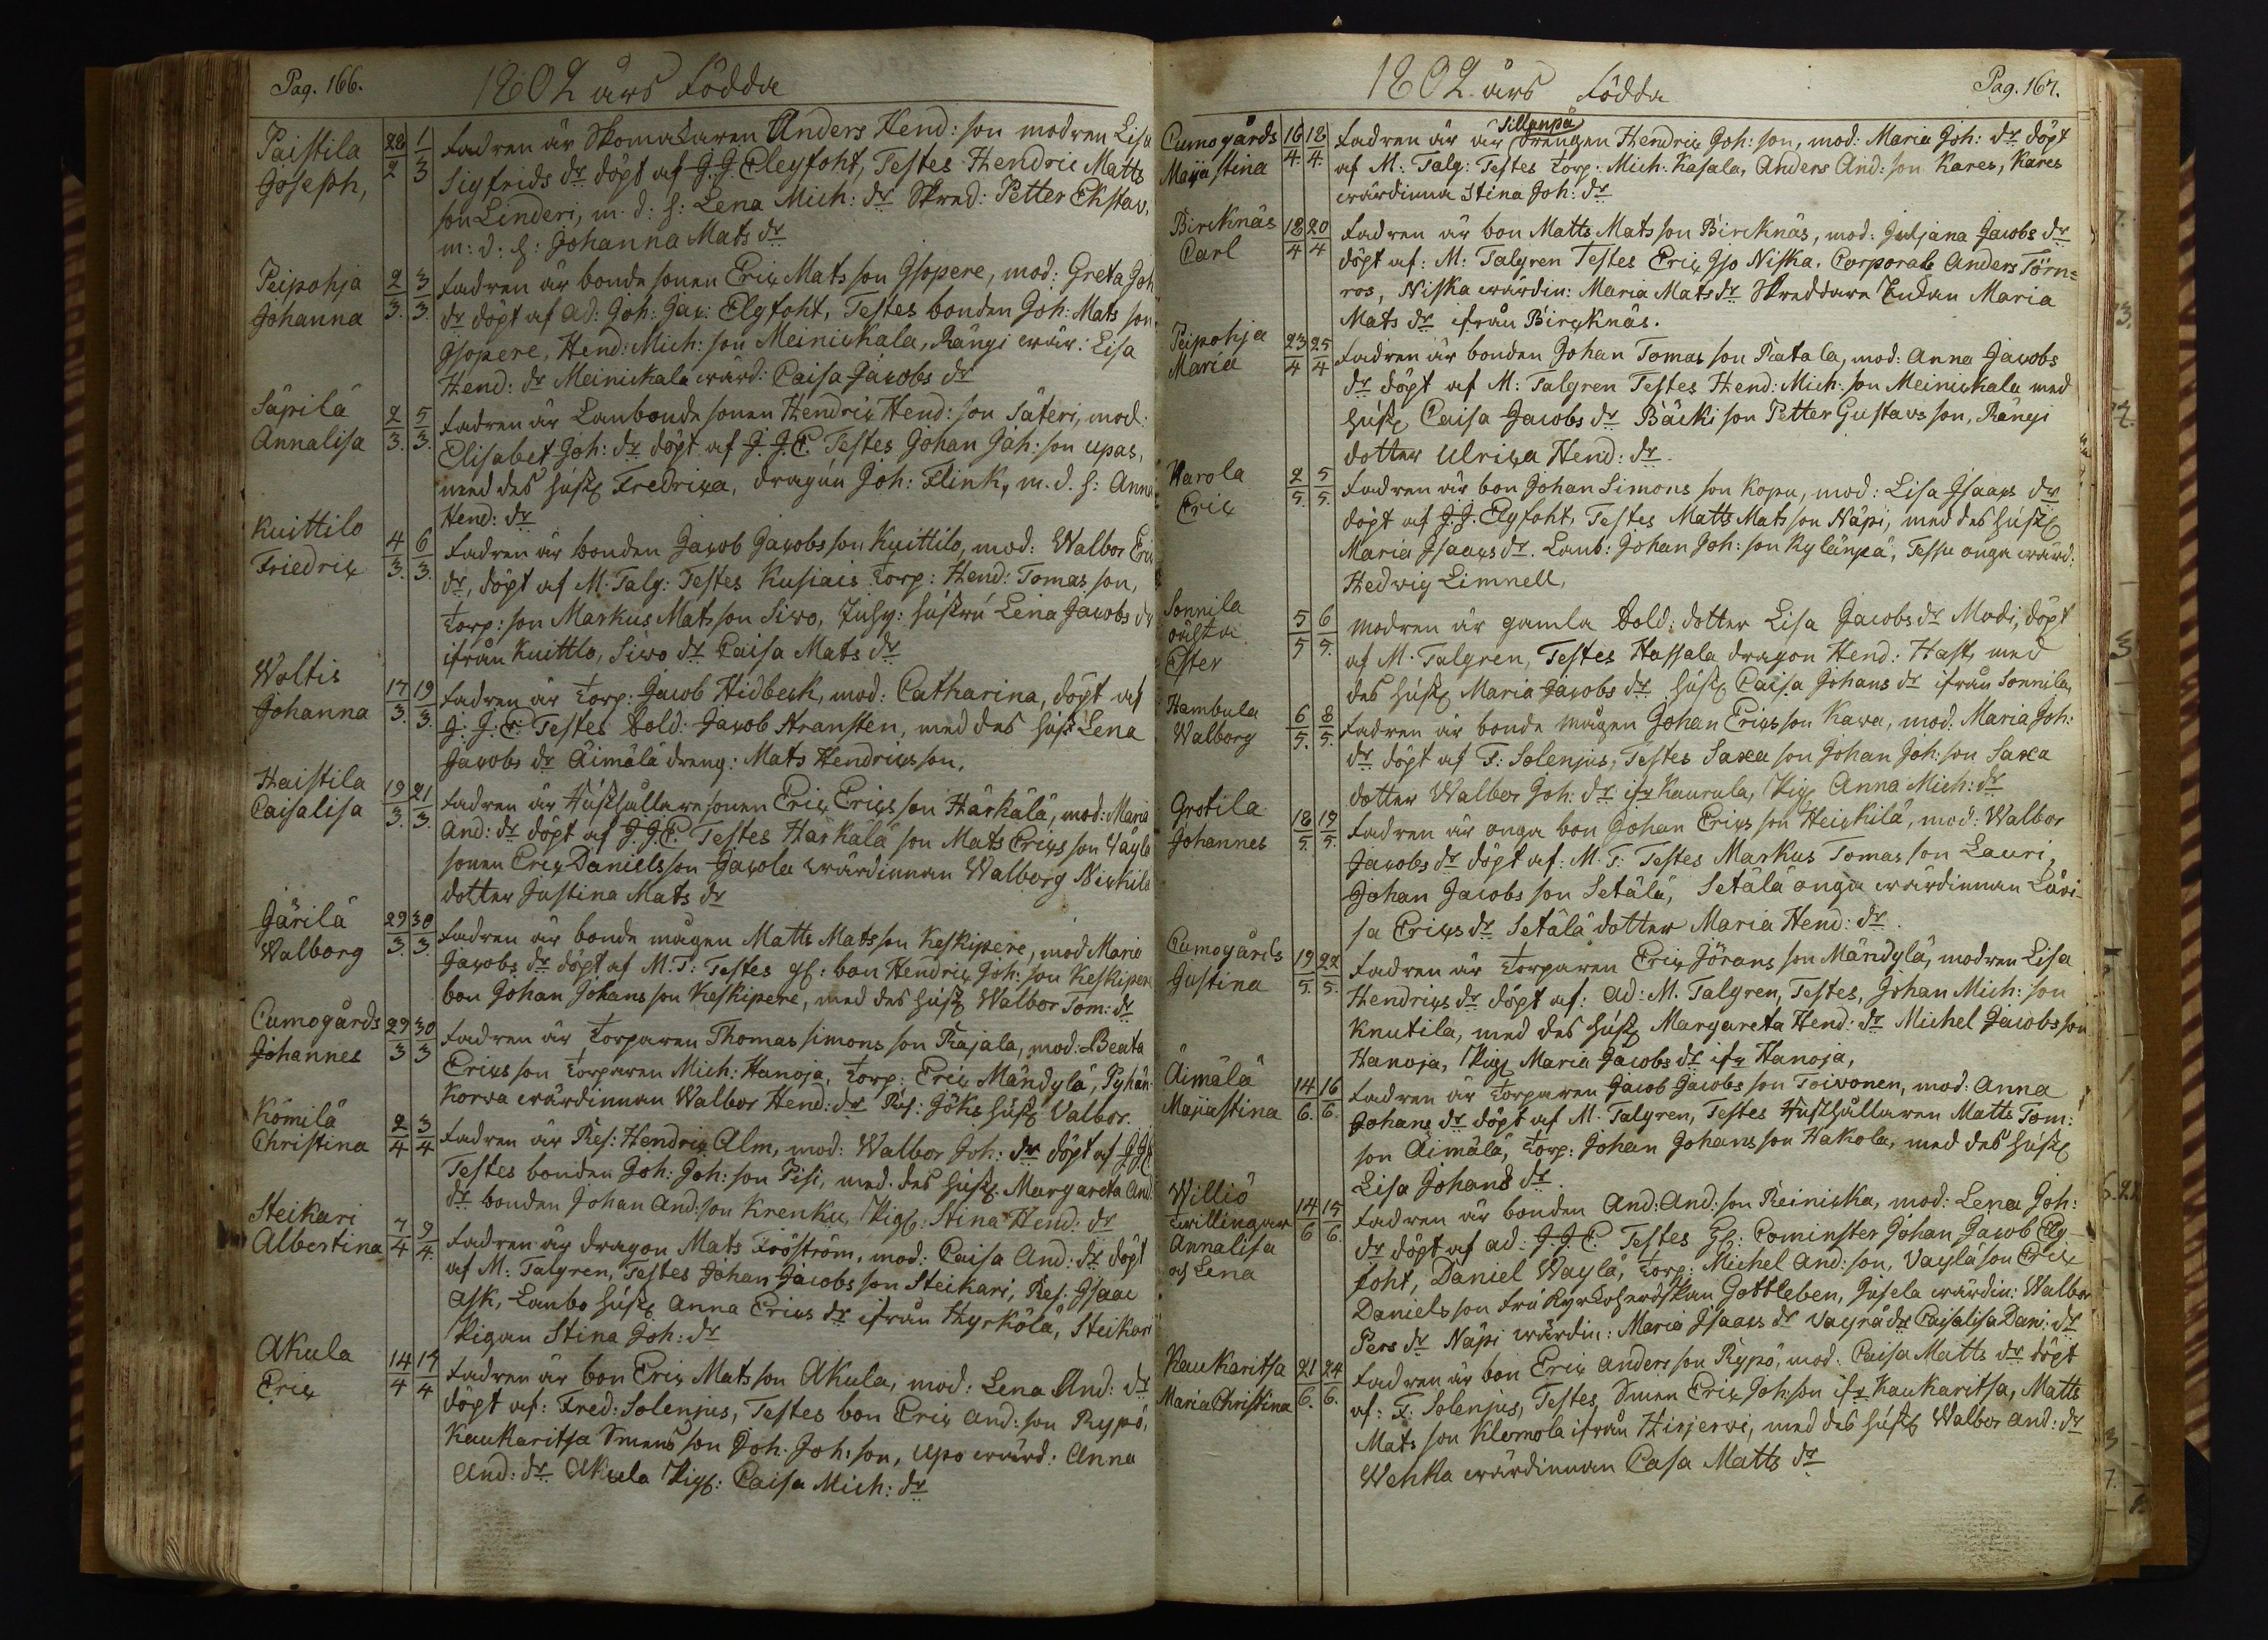 Pag. 166.
1802 års Födda
Paistila
Joseph,
28/2 1/3
Fadren är Skomakaren Anders Hend: son modren Lisa
Sigfrids dr döpt af J. J. Elegfoht, Testes Hendric Matts
son Linderi, m. d: h: Lena Mich: dr Skred: Petter Ekstav,
m: d: h: Johanna Mats dr
Peipohja
Johanna
2/3. 3/3.
Fadren är bonde sonen Eric Mats son Isopere, mod: Greta Joh
dr döpt af ad: Joh: Jac: Elgfoht, Testes bonden Joh: Mats son
Isopere, Hend: Mich: son Meinickala, Rängi wär: Lisa
Hend: dr Meinickala wärd: Caisa Jacobs dr
Säpilä
Annalisa
2/3. 5/3.
Fadren är Lanbonde sonen Hendric Hend: son Säteri, mod:
Elisabet Joh: dr döpt af J. J. E. Testes Johan Joh: son Upas,
med des hust Fredrica, dragun Joh: Flink, m. d. h: Anna
Hend: dr
Kuittilo
Friedric
4/3. 6/3.
Fadren är bonden Jacob Jacobs son Kuittilo, mod: Walbor Eric
dr, döpt af M. Talg: Testes Kusiais Torp: Hend: Tomas son,
Torp: son Markus Mats son Siwo, hustru Lena Jacobs dr
ifrån Kuittlo, Siwo dr Caisa Mats dr
Woltis
Johanna
17/3. 19/3.
Fadren är Torp: Jacob Hidbeck, mod: Catharina, döpt af
J. J. E. Testes Sold: Jacob Stransten, med des hust Lena
Jacobs dr Äimälä dreng: Mats Hendrics son.
Haistila
Caisalisa
19/3. 21/3.
Fadren är Hushållare sonen Eric Erics son Härkälä, mod: Maria
And: dr döpt af J. J. E. Testes Härkälä son Mats Erics son Vägla
sonen Eric Daniels son Jacola wärdinnan Walborg Nickila
dotter Justina Mats dr
Järilä
Walborg
29/3. 30/3.
Fadren är bonde mågen Matts Mats son Keskipere, mod Maria
Jacobs dr döpt af M. T: Testes gl: bon Hendric Joh: son Keskipere
bon Johan Johans son Keskipere, med des hust Walbor Tom: dr
Cumogårds
Johannes
29/3 30/3
Fadren är Torparen Thomas Simons son Rajala, mod: Beata
Erics son Torparen Mich: Hanoja, Torp: Eric Mändylä, Pyhän
Korwa wärdinnan Walbor Hend: dr Res: Jöks hust Valbor.
Kömilä
Christina
2/4 3/4
Fadren är Res: Hendric Alm, mod: Walbor Joh: dr döpt af J. J. E.
Testes bonden Joh: Joh: son Pisi, med. des hust. Margareta And
dr bonden Johan And: son Krenku, Pig: Stina Hend: dr
Steikari
Albertina
7/4 9/4.
Fadren är dragon Mats Fröström, mod: Caisa And: dr döpt
af M: Talgren, Testes Johan Jacobs son Steikari, Res: Isaac
Ask, Lanbo hust Anna Erics dr ifrån Hyrkölä, Steikari
Pigan Stina Joh: dr
Akula
Eric
14/4 17/4
Fadren är bon Eric Mats son Akula, mod: Lena And: dr
döpt af: Fred: Solenius, Testes bon Eric And: son Rypö,
Kaukaritsa Smens son Joh. Joh: son, Upo wärd: Anna
And: dr Akula Pig: Caisa Mich: dr
1802 års Födda
Pag. 167.
Cumogårds
Maijastina
16/4. 18/4.
Sillanpä
Fadren är är drengen Hendric Joh: son, mod: Maria Joh: dr döpt
af M: Talg: Testes Torp: Mich: Kasala, Anders And: son Kares, Kares
wärdinna Stina Joh: dr
Bircknäs
Carl
18/4 20/4
Fadren är bon Matts Mats son Bircknäs, mod: Juljana Jacobs dr
döpt af: M: Talgren Testes Eric Iso Niska. Corporale Anders Törn=
ros, Niska wärdin: Maria Mats dr Skreddare Enkan Maria
Mats dr ifrån Bircknäs.
Peipohja
Maria
23/4 25/4
Fadren är bonden Johan Tomas son Ratala, mod: Anna Jacobs
dr döpt af M: Talgren Testes Hend: Mich: son Meinickala med
hust Caisa Jacobs dr Bäcki son Petter Gustavs son, Rängi
dotter Ulrica Hend: dr.
Harola
Eric
2/5. 5/5.
Fadren är bon Johan Simons son Kopu, mod: Lisa Isaacs dr
döpt af J. J. Elgfoht, Testes Matts Mats son Näpi, med des hust
Maria Isaacs dr. Lanb: Johan Joh: son Kylänpä, Tessu onga wärd:
Hedwig Limnell,
Sonnila
oächta
Ester
5/5 6/5.
modren är gamla Sold: dotter Lisa Jacobs dr Modi, döpt
af M. Talgren, Testes Hassala dragon Hend: Hast, med
des hust Maria Jacobs dr hust Caisa Johans dr ifrån Sonnila,
Hambula
Walborg
6/5. 8/5.
Fadren är bonde mågen Johan Erics son Kawa, mod: Maria Joh:
dr döpt af F: Solenjus, Testes Saxa son Johan Joh: son Saxa
dotter Walbor Joh: dr ifr Kaurula, Pig Anna Mich: dr
Grotila
Johannes
18/5. 19/5.
Fadren är onga bon Johan Erics son Heickilä, mod: Walbor
Jacobs dr döpt af: M. T: Testes Markus Tomas son Lauri,
Johan Jacobs son Setälä, Setälä onga wärdinnan Lävi-
sa Erics dr Setälä dotter Maria Hend: dr.
Cumogårds
Justina
19/5. 22/5.
Fadren är Torparen Eric Jörans son Mändylä, modren Lisa
Hendrics dr döpt af: ad: M. Talgren, Testes, Johan Mich: son
Knutila, med des hust Margareta Hend: dr Michel Jacobs son
Hanoja, Pig Maria Jacobs dr ifr Hanoja,
Äimälä
Majiastina
14/6. 16/6.
Fadren är Torparen Jacob Jacobs son Toivonen, mod: Anna
Johans dr döpt af M. Talgren, Testes Hushållaren Matts Tom:
son Äimälä, Torp: Johan Johans son Hakola, med des hust
Lisa Johans dr.
Williö
Twillingar
Annalisa
och Lena
14/6 15/6.
Fadren är bonden And: And: son Reinicka, mod: Lena Joh:
dr döpt af ad: J. J. E. Testes Hl: Cominster Johan Jacob Elg-
foht, Daniel Waylä, Torp: Michel And: son, Vaylä son Eric
Daniels son Fru Kyrkoherdskan Gottleben, Jusela wärdin: Walbor
Pers dr Näpi wärdin: Maria Isaacs dr Vayrå dr Caisalisa Dani: dr
Kaukaritsa
Maria Christina
21/6. 24/6.
Fadren är bon Eric Anders son Rypö, mod: Caisa Matts dr döpt
af: F: Solenjus, Testes, Smen Eric Joh: son ifr Kaukaritsa, Matts
Mats son Klemola ifrån Hinjerwi, med des hust Walbor And: dr
Wehka wärdinnan Casa Matts dr